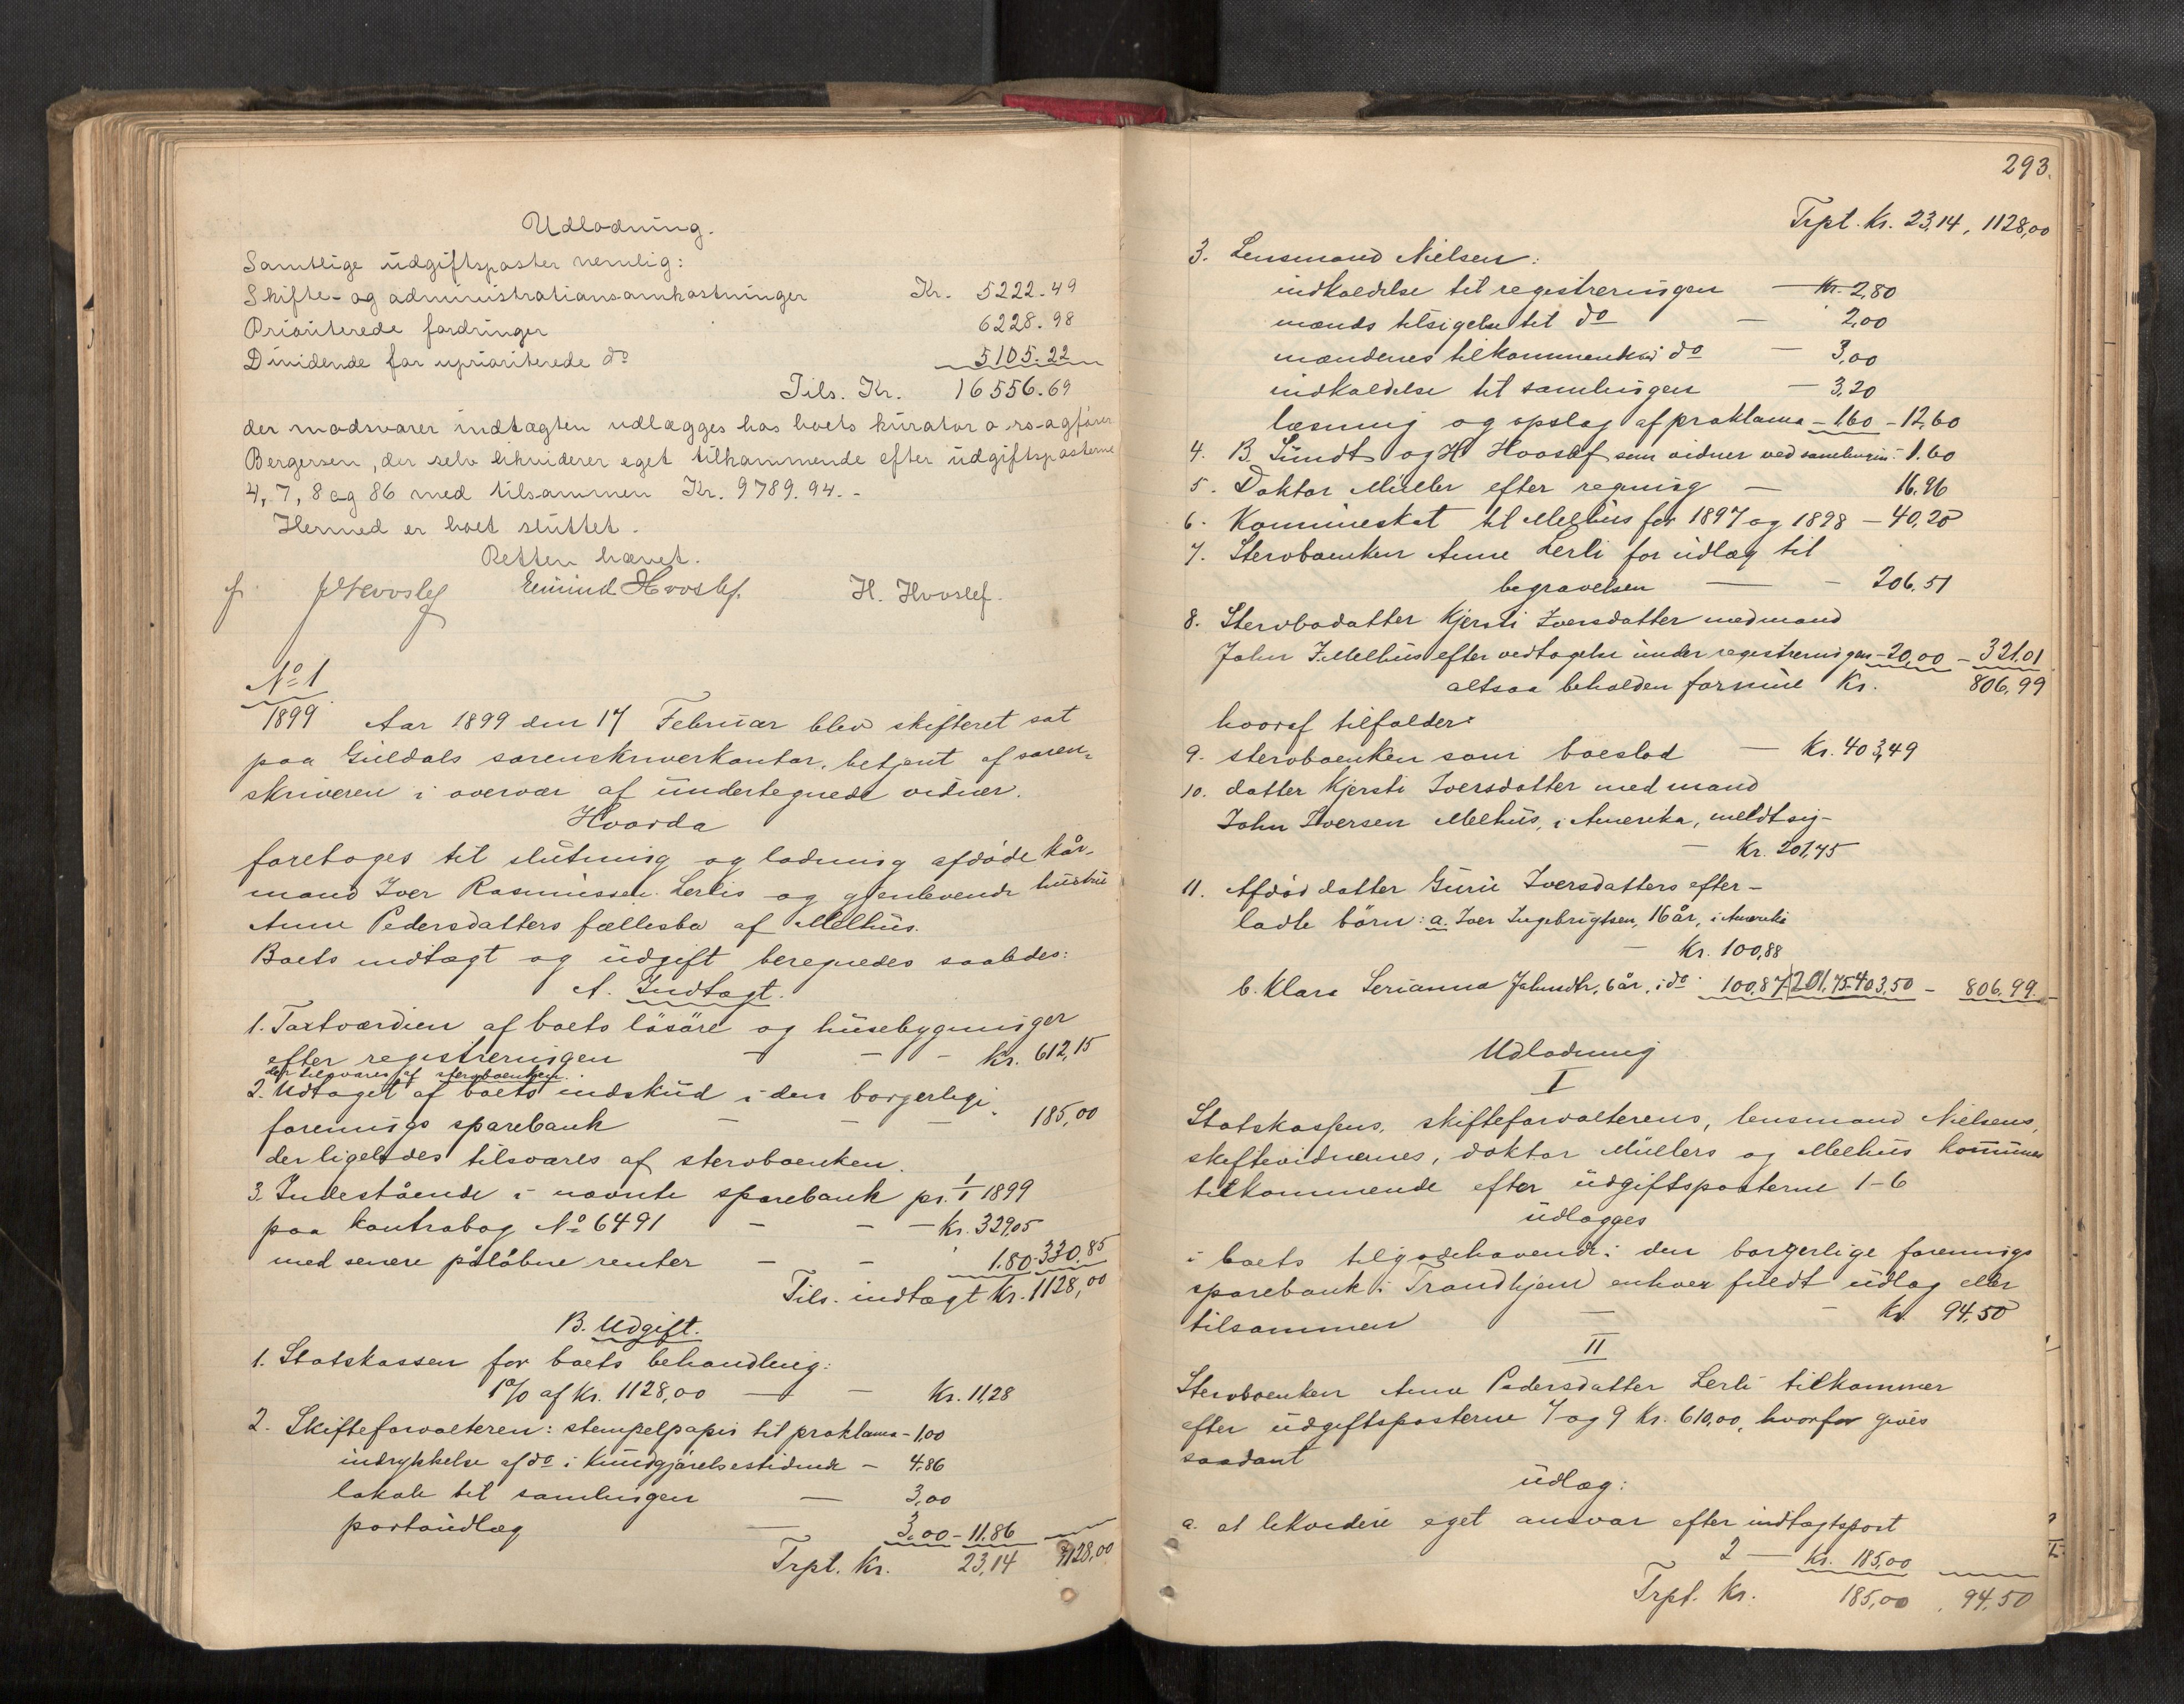 Udlodning.
Samtlige udgiftsposter nemlig:
Skifte- og administrationsomkostninger Kr. 5222.49
Prioriterede fordringer 6228.98
Dividende for uprioriterede do 5105.22
Tils. Kr. 16556.69
der modsvarer indtægten udlægges hos boets kurator o rs-agfører
Bergersen, der selv likviderer eget tilkommende efter udgiftsposterne
4, 7, 8 og 86 med tilsammen Kr. 9789.94.-
Hermed er boet sluttet.
Retten hævet.
Hvoslef Eivind Hvoslef. H. Hvoslef.
No 1
1899 Aar 1899 den 17 Februar blev skifteret sat
paa Guldals sorenskriverkontor, betjent af soren-
skriveren i overvær af undertegnede vidner.
Hvorda
foretoges til slutning og lodning afdøde kår-
mand Iver Rasmussen Lerlis og gjenlevende hustru
Anne Pedersdatters fællesbo af Melhus.
Boets indtægt og udgift beregnedes saaledes:
A. Indtægt.
1. Taxtværdien af boets løsøre og husebygninger
efter registreringen - - - Kr. 612,15
der tilsvares af stervboenken.
2. Udtaget af boets indskud i den borgerlige
forenings sparebank - - - 185,00
der ligeledes tilsvares af stervboenken.
3. Indestående i nævnte sparebank pr. 1/1 1899
paa kontrabog No 6491 - - - Kr. 329,05
med senere påløbne renter - - 1.80 - 330.85
Tils. indtægt Kr. 1128,00
B. Udgift.
1. Statskassen for boets behandling:
1% af Kr. 1128,00 - - Kr. 11,28
2. Skifteforvalteren: stempelpapir til proklama - 1,00
indrykkelse af do i Kundgjørelsestidende - 4.86
lokale til samlingen - 3,00
portoudlæg - 3,00 - 11.86
Trpt. Kr. 23,14 1128,00
293.
Trpt. Kr. 23,14, 1128,00
3. Lensmand Nielsen:
indkaldelse til registreringen - Kr. 2,80
mænds tilsigelse til do - 2,00
mændenes tilkommende do - 3,00
indkaldelse til samlingen - 3,20
læsning og opslag af proklama - 1.60 - 12,60
4. B. Sundt og H. Hvoslef som vidner ved samlingen - 1.60
5. Doktor Müller efter regning - 16.96
6. Kommuneskat til Melhus for 1897 og 1898 - 40,20
7. Stervboenken Anne Lerli for udlæg til
begravelsen - - 206,51
8. Stervbodatter Kjersti Iversdatter med mand
John I. Melhus efter vedtagelse under registreringen - 20,00 - 321.01
altsaa beholden formue Kr. 806,99
hvoraf tilfalder:
9. stervboenken som boeslod - Kr. 403,49
10. datter Kjersti Iversdatter med mand
John Iversen Melhus, i Amerika, meldt sig -
- Kr. 201,75
11. Afdød datter Guru Iversdatters efter-
ladte børn: a. Iver Ingebrigtsen, 16 år, i Amerika
- Kr. 100,88
b. Klara Serianna Johnsdtr, 6 år, i do - 100,87 201.75 403.50 - 806.99.
Udlodning
I
Statskassens, skifteforvalterens, lensmand Nielsens,
skiftevidnernes, doktor Müllers og Melhus kommunes
tilkommende efter udgiftsposterne 1-6
udlægges
i boets tilgodehavende i den borgerlige forenings
sparebank i Trondhjem enhver fuldt udlæg eller
tilsammen - - Kr. 94,50
II
Stervboenken Anne Pedersdatter Lerli tilkommer
efter udgiftsposterne 7 og 9 Kr. 610,00, hvorfor gives
saadant
udlæg:
a. at likvidere eget ansvar efter indtægtspost
2 - Kr. 185,00
Trpt. Kr. 185,00, 94,50